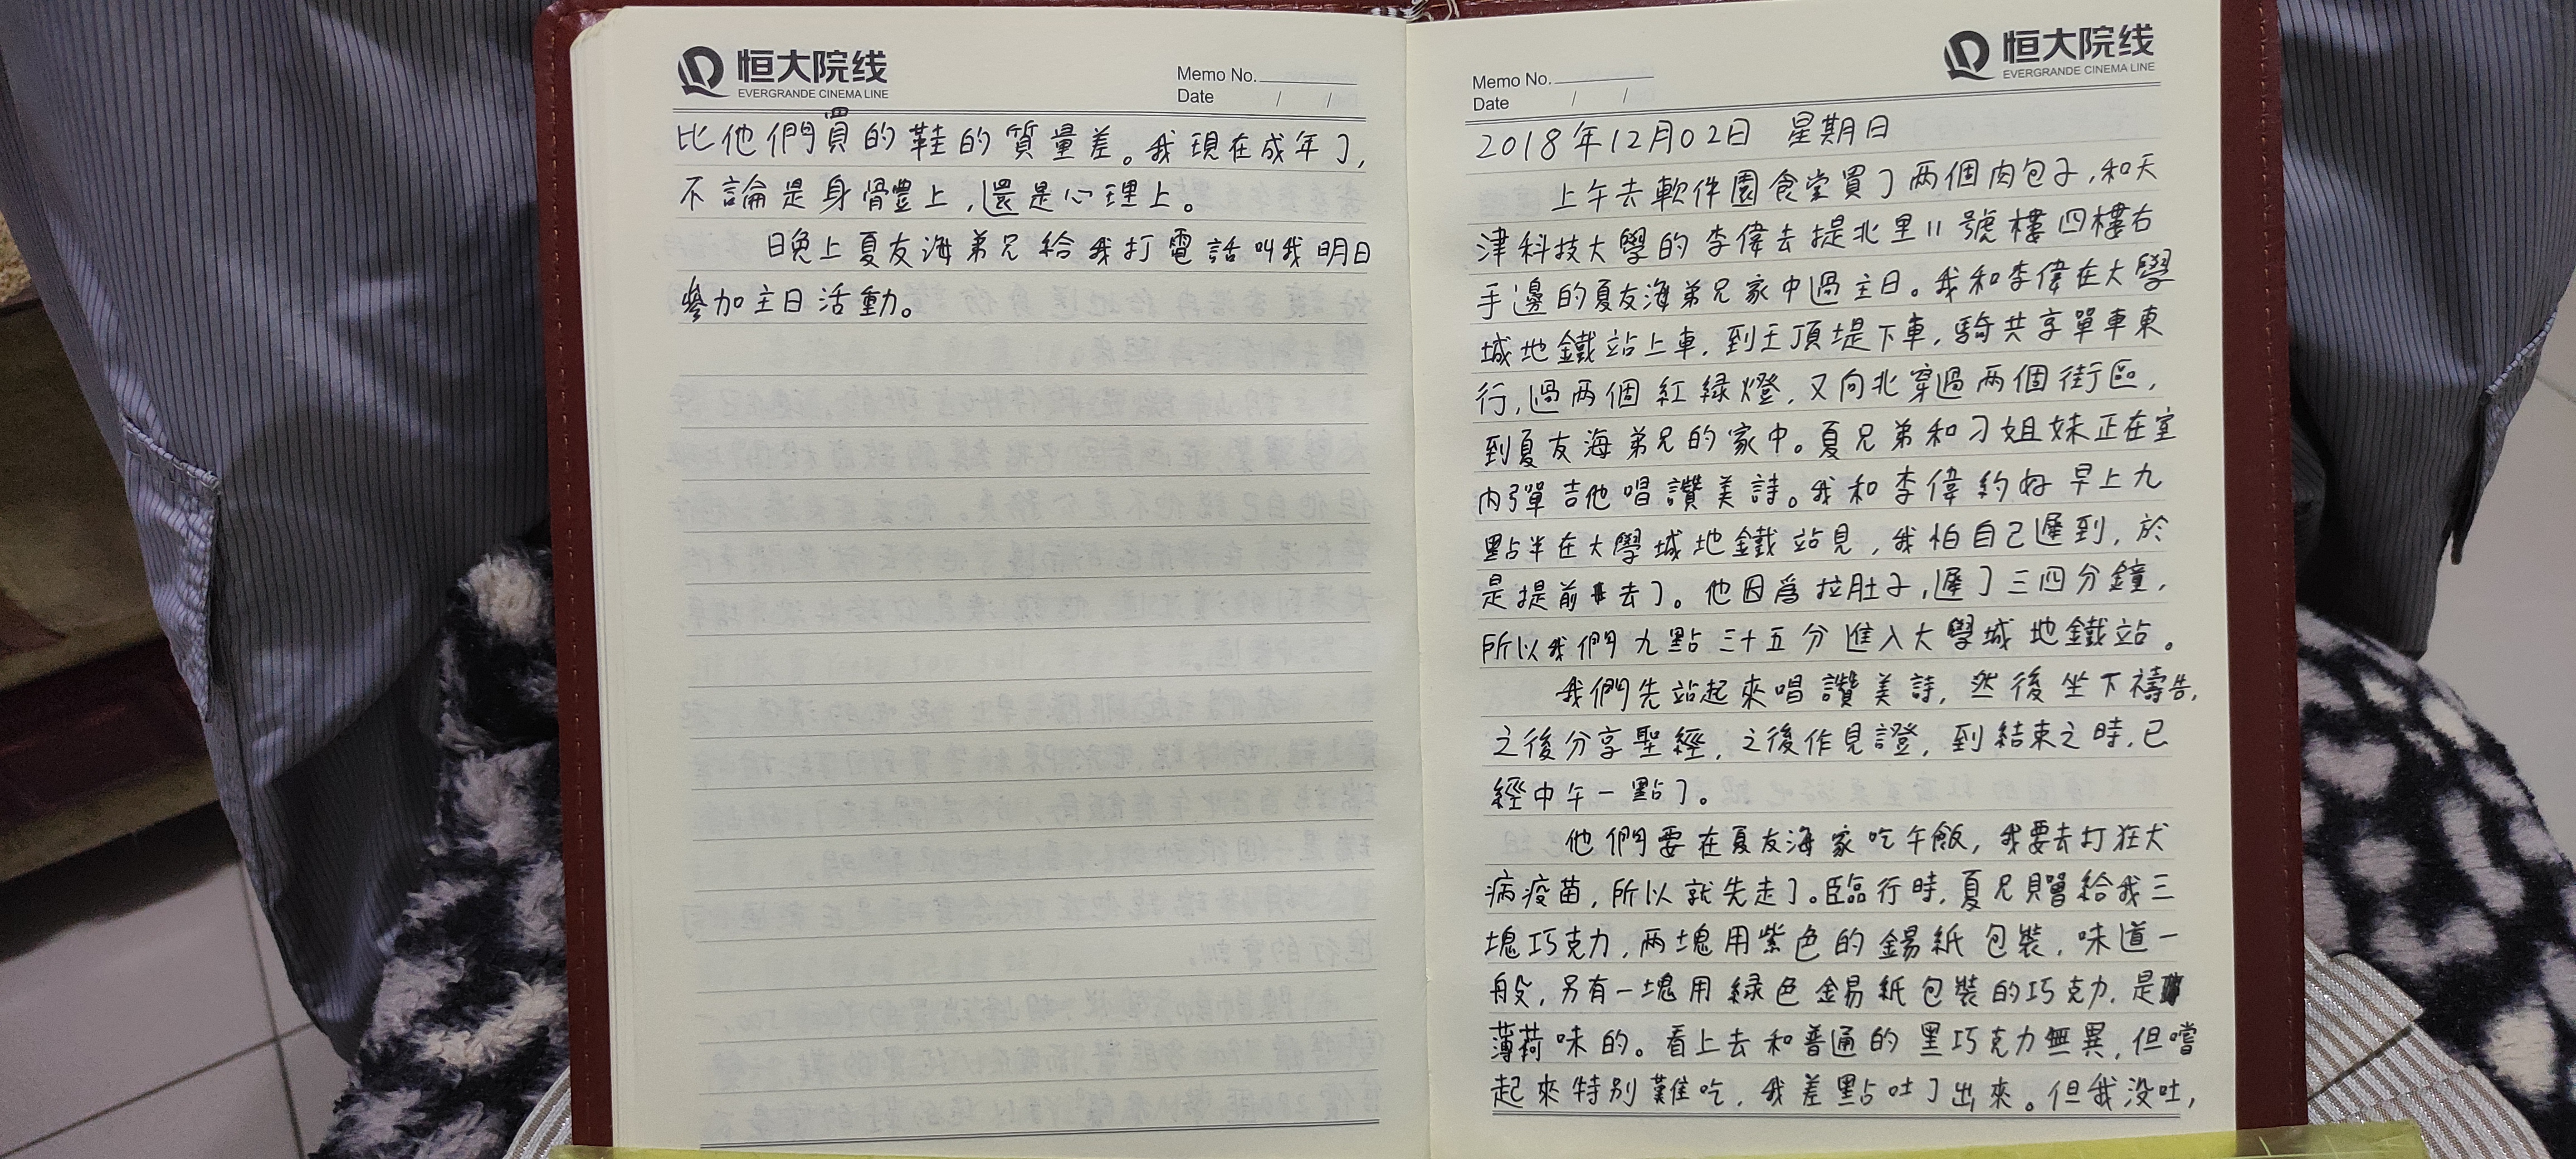 恒大院线
EVERGRANDE CINEMA LINE
Memo No.
Date / /
比他們買的鞋的質量差。我現在成年了,
不論是身骨體上,還是心理上。
晚上夏友海弟兄給我打電話叫我明日
參加主日活動。
恒大院线
EVERGRANDE CINEMA LINE
Memo No.
Date / /
2018年12月02日 星期日
上午去軟件園食堂買了两個肉包子,和天
津科技大學的李偉去提北里11號樓四樓右
手邊的夏友海弟兄家中過主日。我和李偉在大學
城地鐵站上車,到王頂堤下車,騎共享單車東
行,過两個紅緑燈,又向北穿過两個街區,
到夏友海弟兄的家中。夏兄弟和刁姐妹正在室
内彈吉他唱讚美詩。我和李偉約好早上九
點半在大學城地鐵站見,我怕自己遲到,於
是提前去了。他因爲拉肚子,遲了三四分鐘,
所以我們九點三十五分進入大學城地鐵站。
我們先站起來唱讚美詩,然後坐下禱告,
之後分享聖經,之後作見證,到結束之時,已
經中午一點了。
他們要在夏友海家吃午飯,我要去打狂犬
病疫苗,所以就先走了。臨行時,夏兄贈給我三
塊巧克力,两塊用紫色的錫紙包裝,味道一
般,另有一塊用緑色錫紙包裝的巧克力,是
薄荷味的。看上去和普通的黑巧克力無異,但嚐
起來特别難吃,我差點吐了出來。但我没吐,